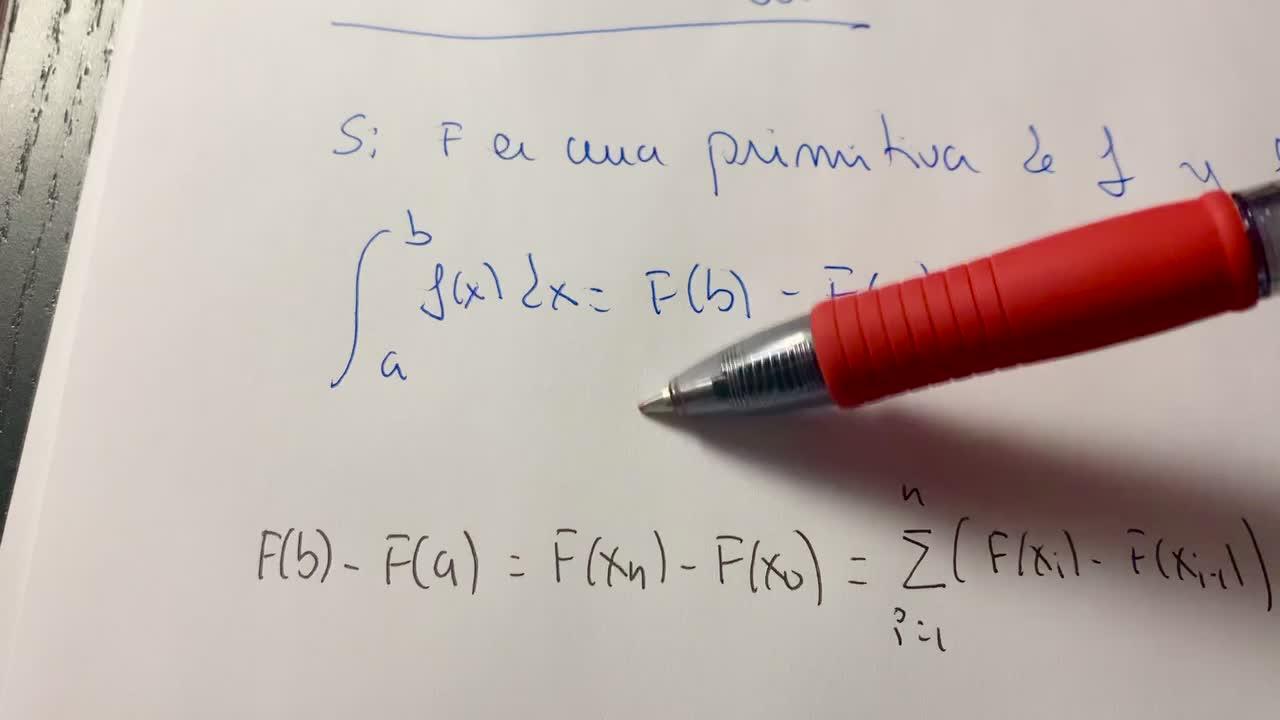 Si F es una primitiva de f y
∫_a^b f(x) dx = F(b) - F(
F(b) - F(a) = F(xₙ) - F(x₀) = ∑_{i=1}^n (F(xᵢ) - F(xᵢ₋₁)